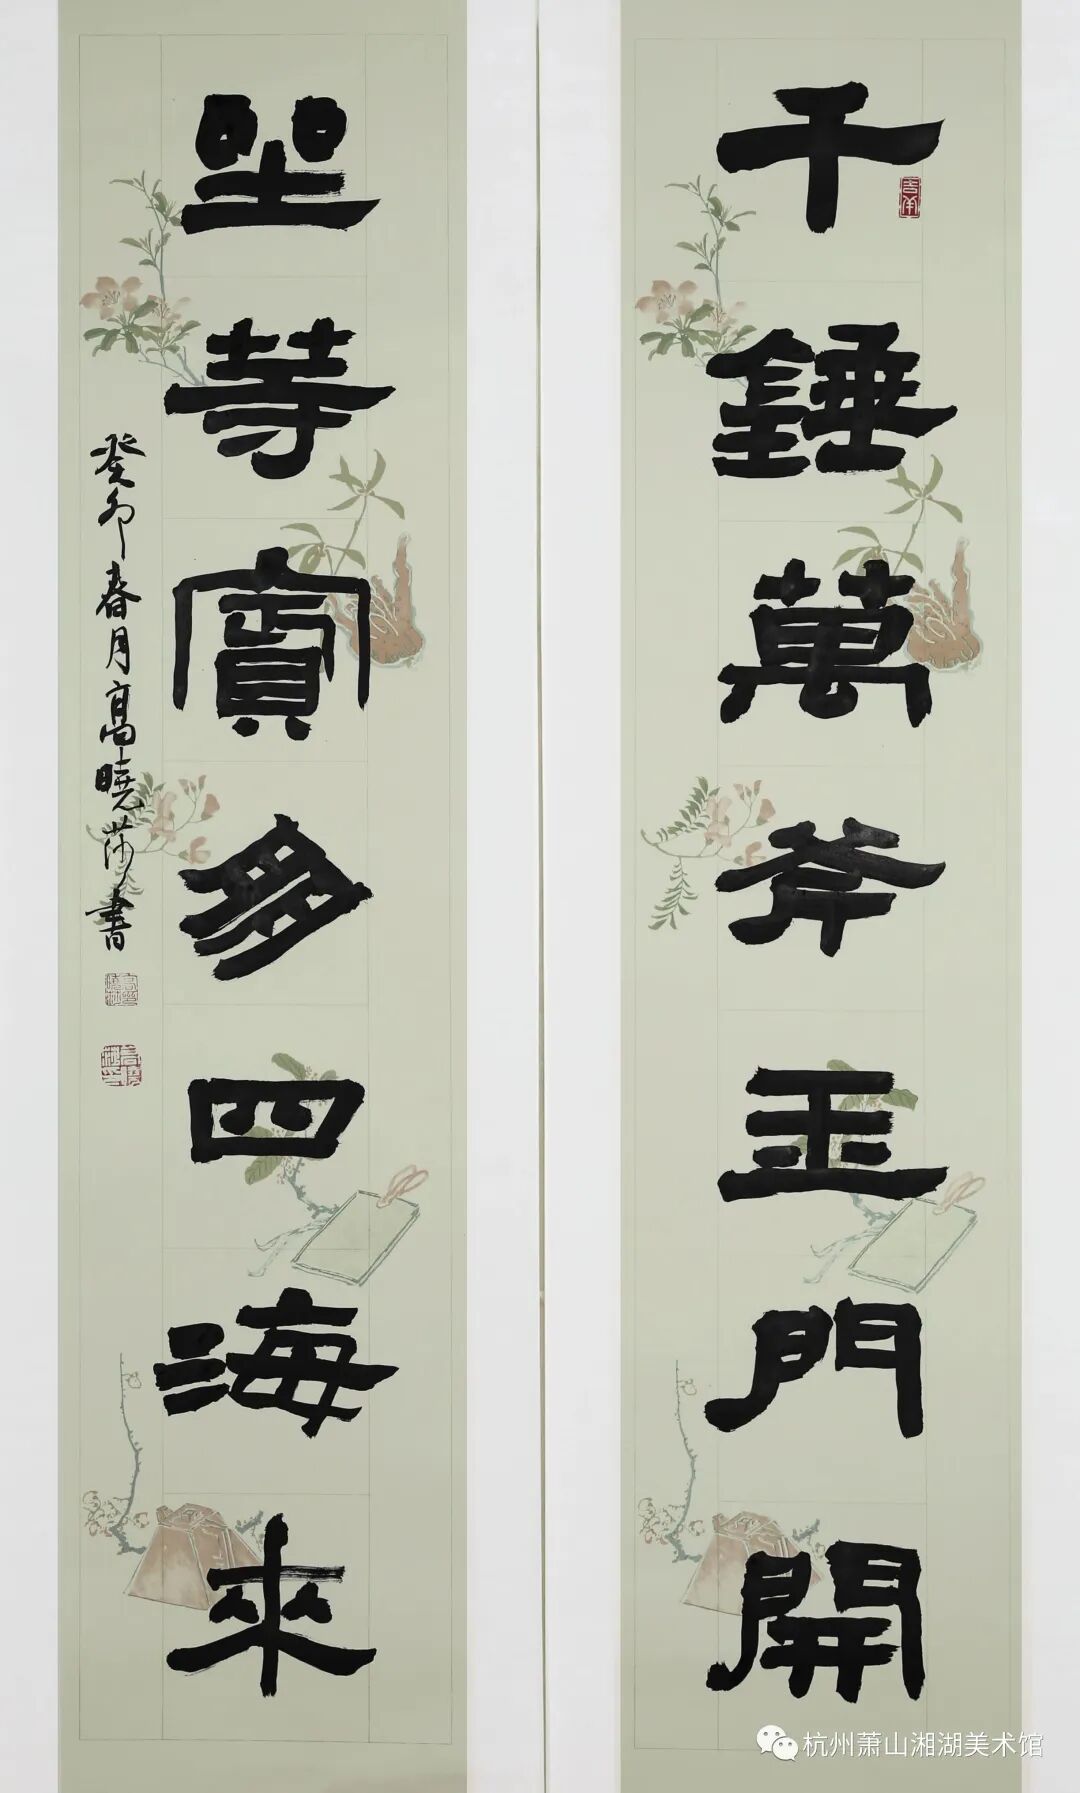 千錘萬斧玉門開
坐等賓多四海來
癸卯春月高曉莎書
杭州萧山湘湖美术馆